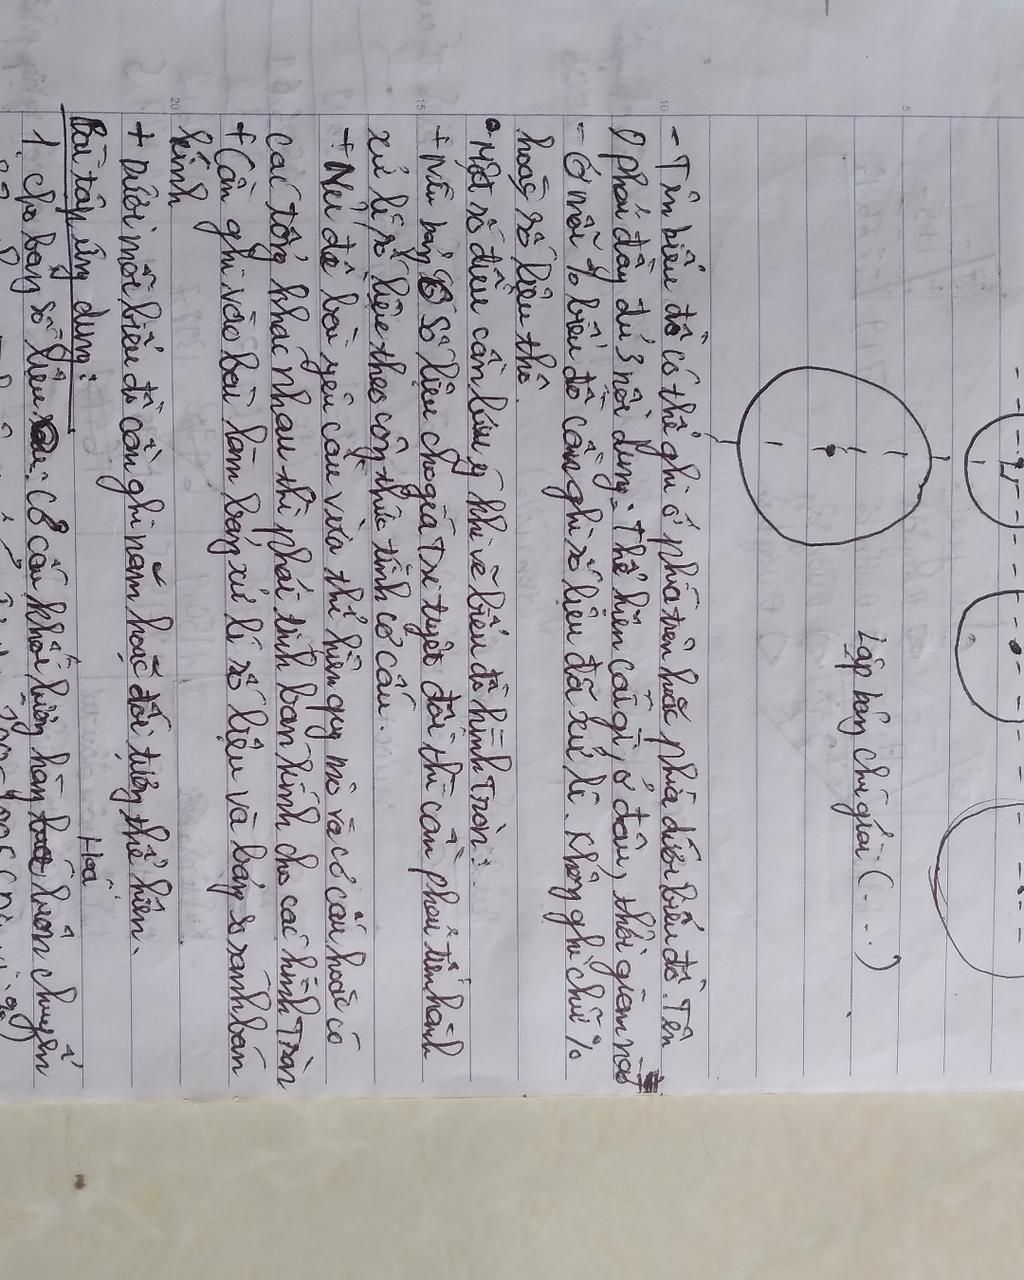 Lập bảng chú giải (...)
- Tên biểu đồ có thể ghi ở phía trên hoặc phía dưới biểu đồ. Tên
phải đầy đủ 3 nội dung: thể hiện cái gì, ở đâu, thời gian nào
- Ở mỗi % biểu đồ cần ghi số liệu đã xử lí. Không ghi chữ %
hoặc số liệu thô.
• Một số điều cần lưu ý khi vẽ biểu đồ hình tròn:
+ Nếu bảng số liệu cho giá trị tuyệt đối thì cần phải tiến hành
xử lí số liệu theo công thức tính cơ cấu.
+ Nếu đề bài yêu cầu vừa thể hiện quy mô và cơ cấu hoặc có
các tổng khác nhau thì phải tính bán kính cho các hình tròn
+ Cần ghi vào bài làm bảng xử lí số liệu và bảng so sánh bán
kính
+ Dưới mỗi biểu đồ cần ghi năm hoặc đối tượng thể hiện.
Bài tập ứng dụng:
1, cho bảng số liệu: Cơ cấu khối lượng hàng hoá luân chuyển